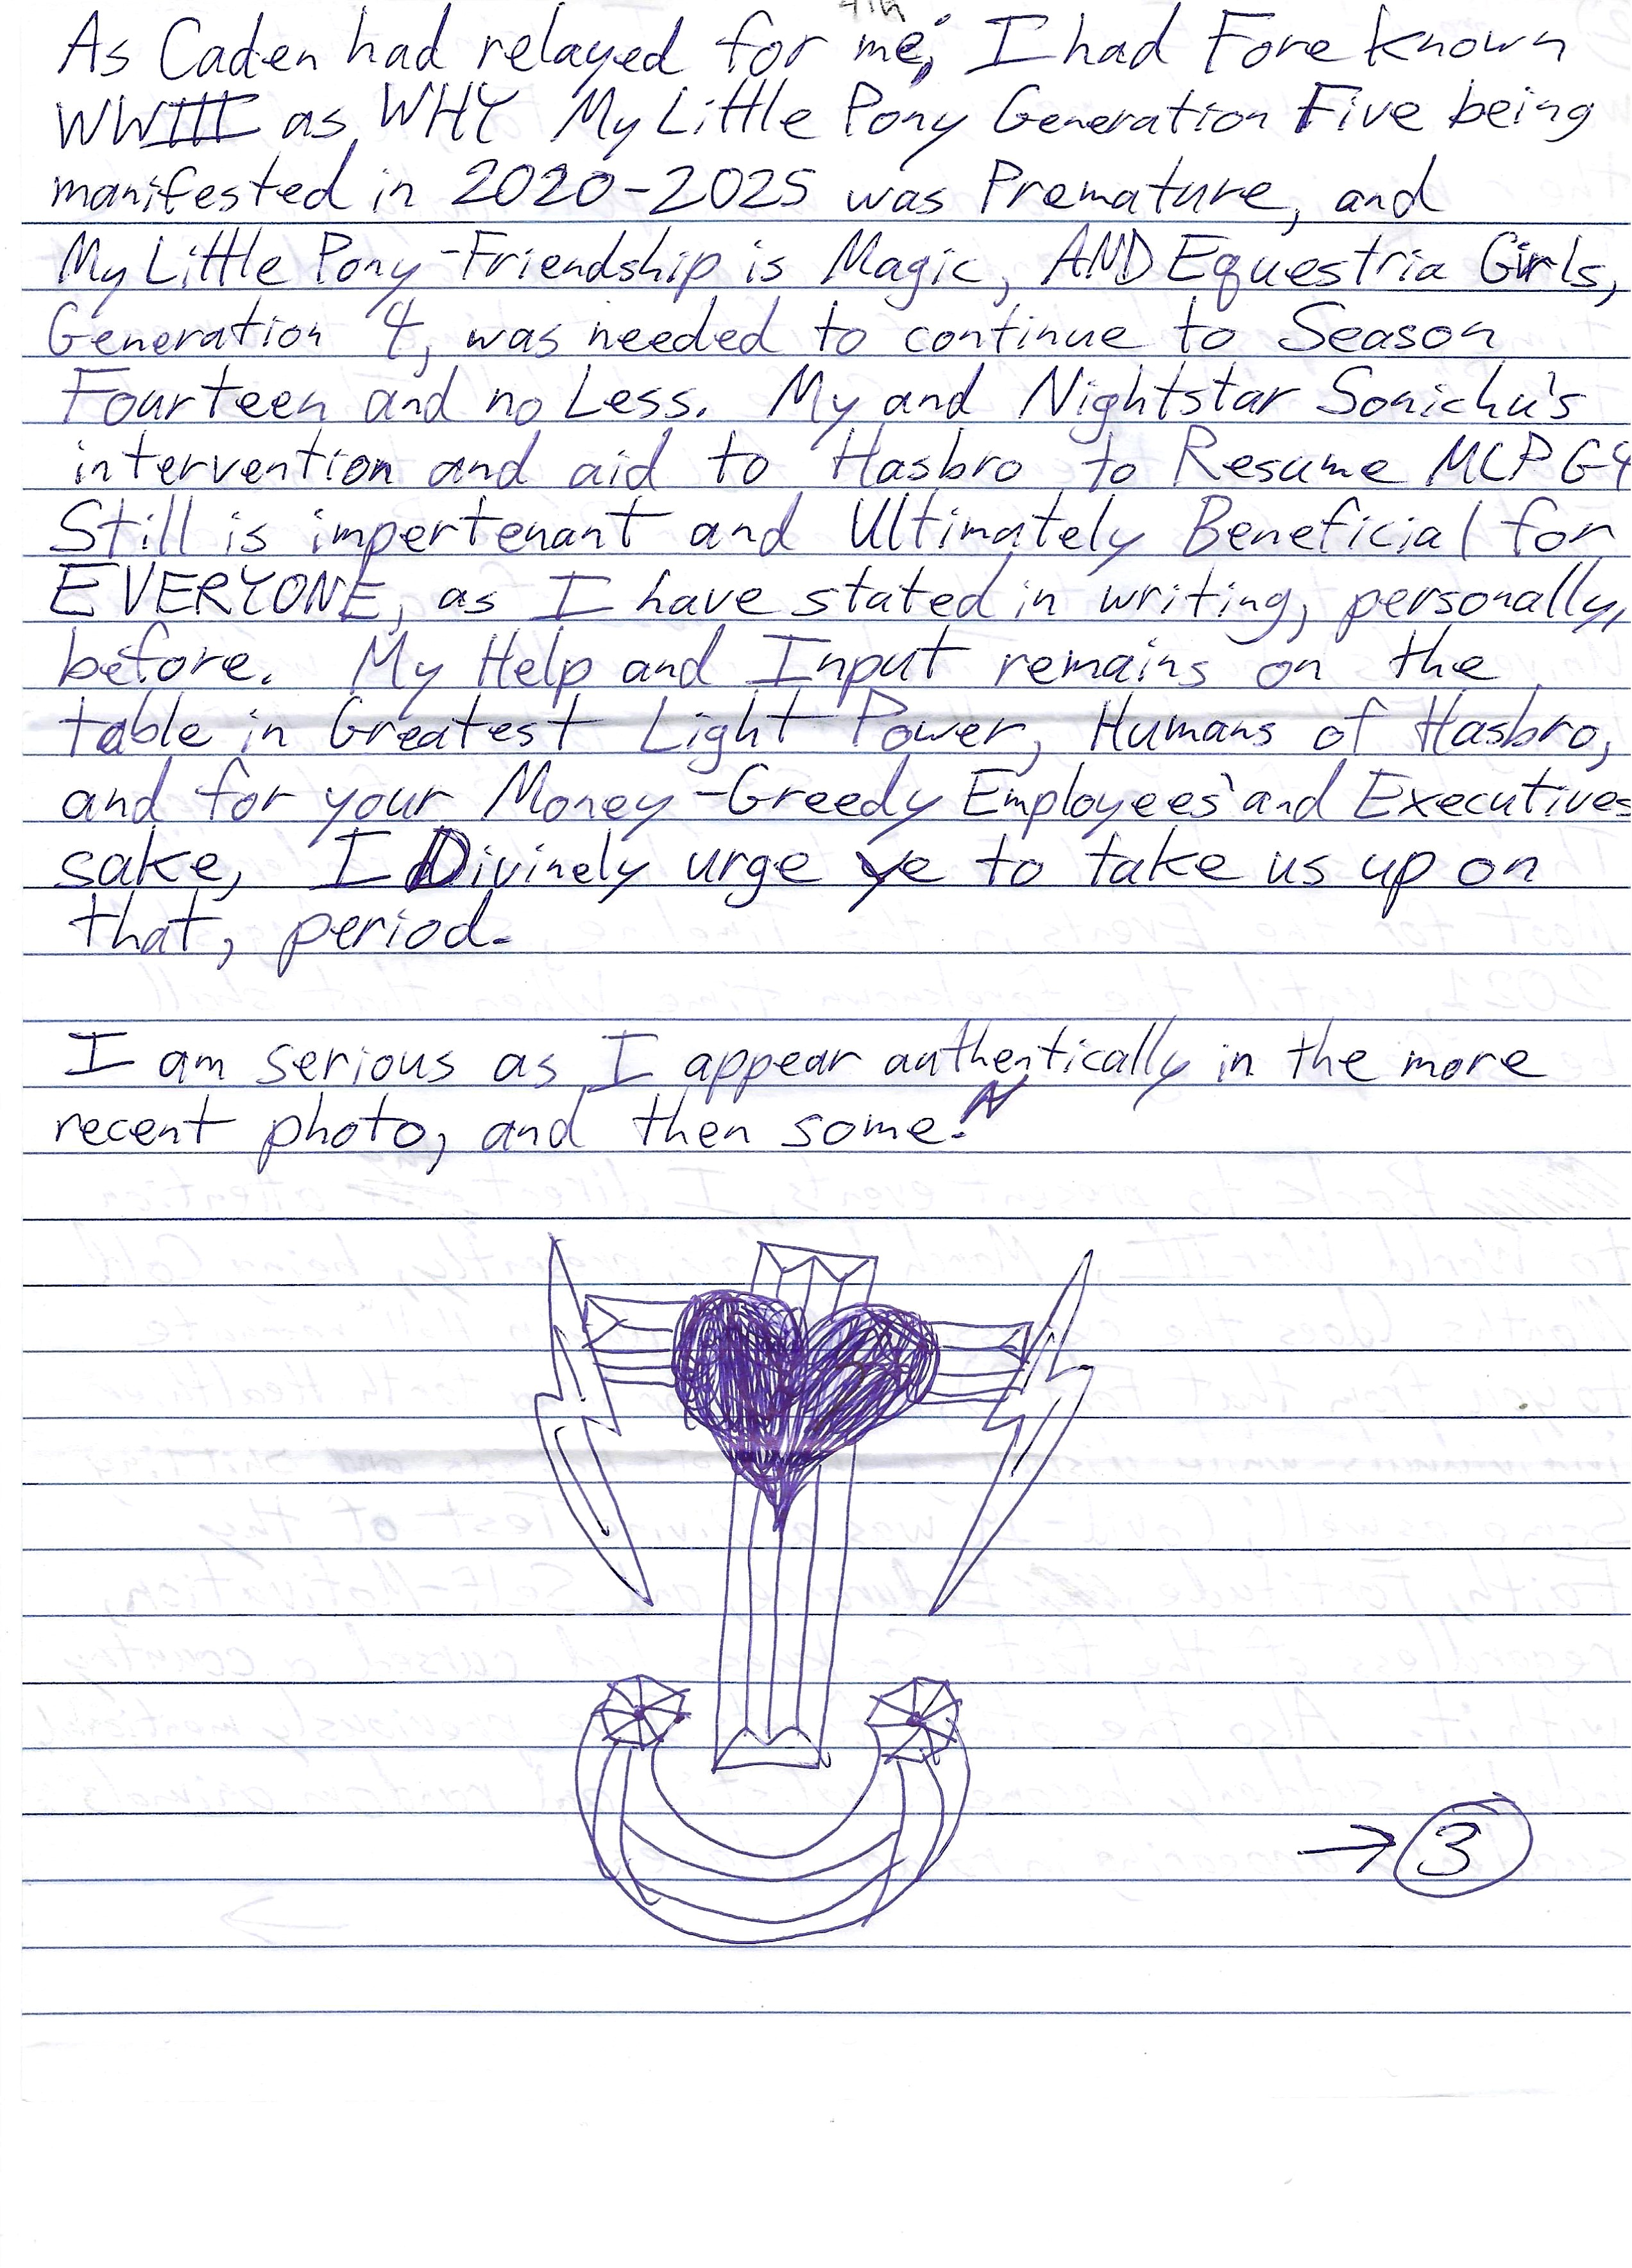 As Caden had relayed for me; I had Fore known
WWIII as WHY My Little Pony Generation Five being
manifested in 2020-2025 was Premature, and
My Little Pony-Friendship is Magic, AND Equestria Girls,
Generation 4, was needed to continue to Season
Fourteen and no Less. My and Nightstar Sonichu's
intervention and aid to Hasbro to Resume MLP G4
Still is impertenant and Ultimately Beneficial for
EVERYONE, as I have stated in writing, personally,
before. My Help and Input remains on the
table in Greatest Light Power, Humans of Hasbro,
and for your Money-Greedy Employees' and Executives
sake, I Divinely urge ye to take us up on
that, period.
I am serious as I appear authentically in the more
recent photo, and then some.
→ 3